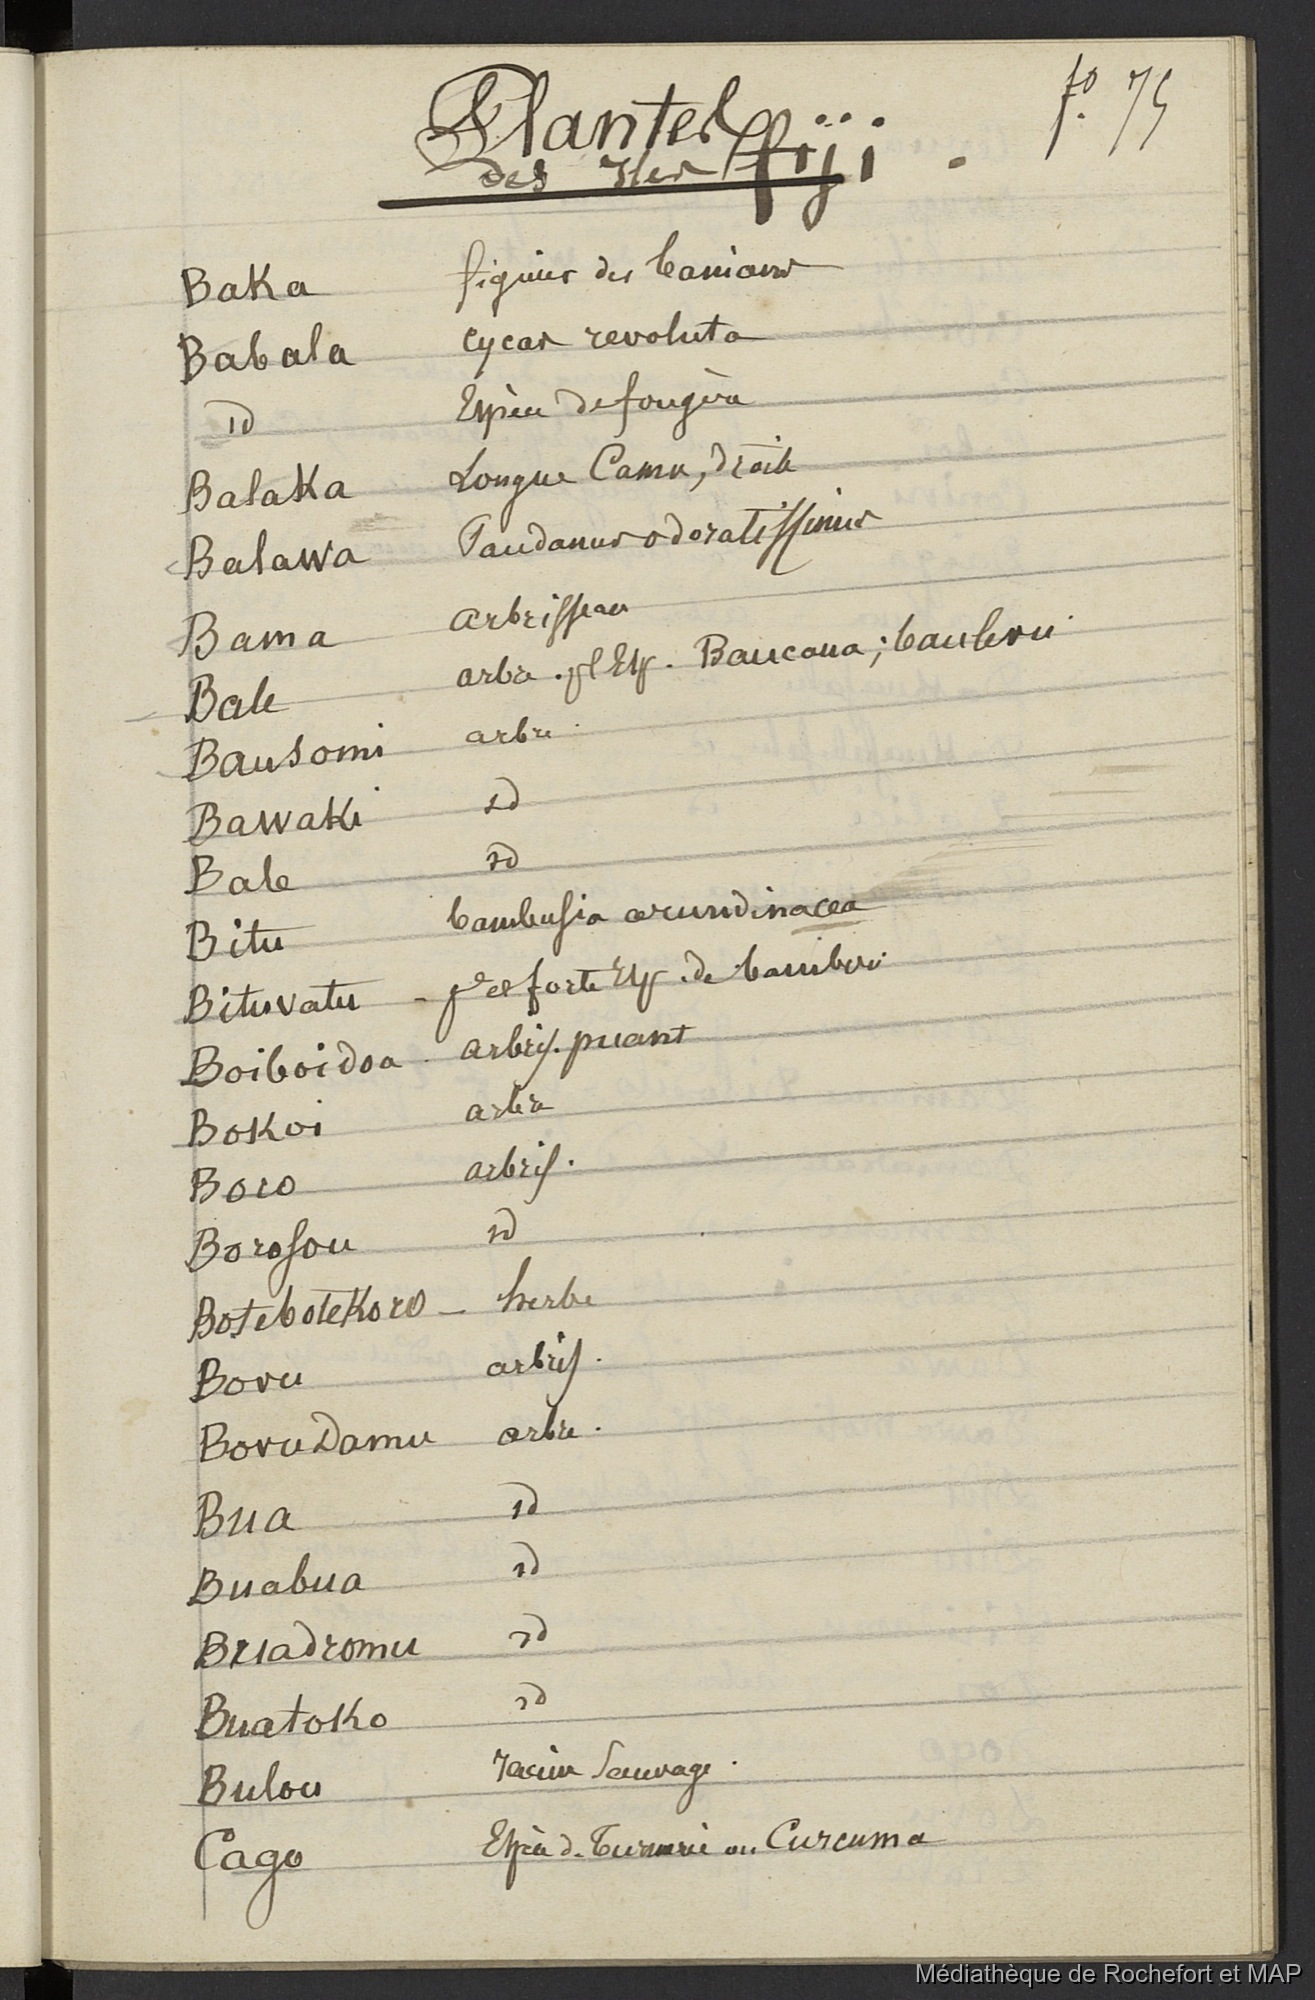 f° 75
Plantes
des Iles fiji.
Baka figuier des banians
Babala cycas revoluta
id Espèce de fougère
Balaka Longue Canne, droite
Balawa Pandanus odoratissimus
Bama arbrisseau
Bale arbre. pl Esp. Baucaua; baulevu
Bausomi arbre.
Bawaki id
Bale id
Bitu bambusia arundinacea
Bituvatu - pl et forte Esp. de bambou
Boiboidoa arbris. puant
Bokoi arbre
Boro arbris.
Borosou id
Botebotekoro - herbe
Bovu arbris.
Bovudamu arbre.
Bua id
Buabua id
Buadromu id
Buatoko id
Bulou racine Sauvage.
Cago Espèce de turmeric ou Curcuma
Médiathèque de Rochefort et MAP